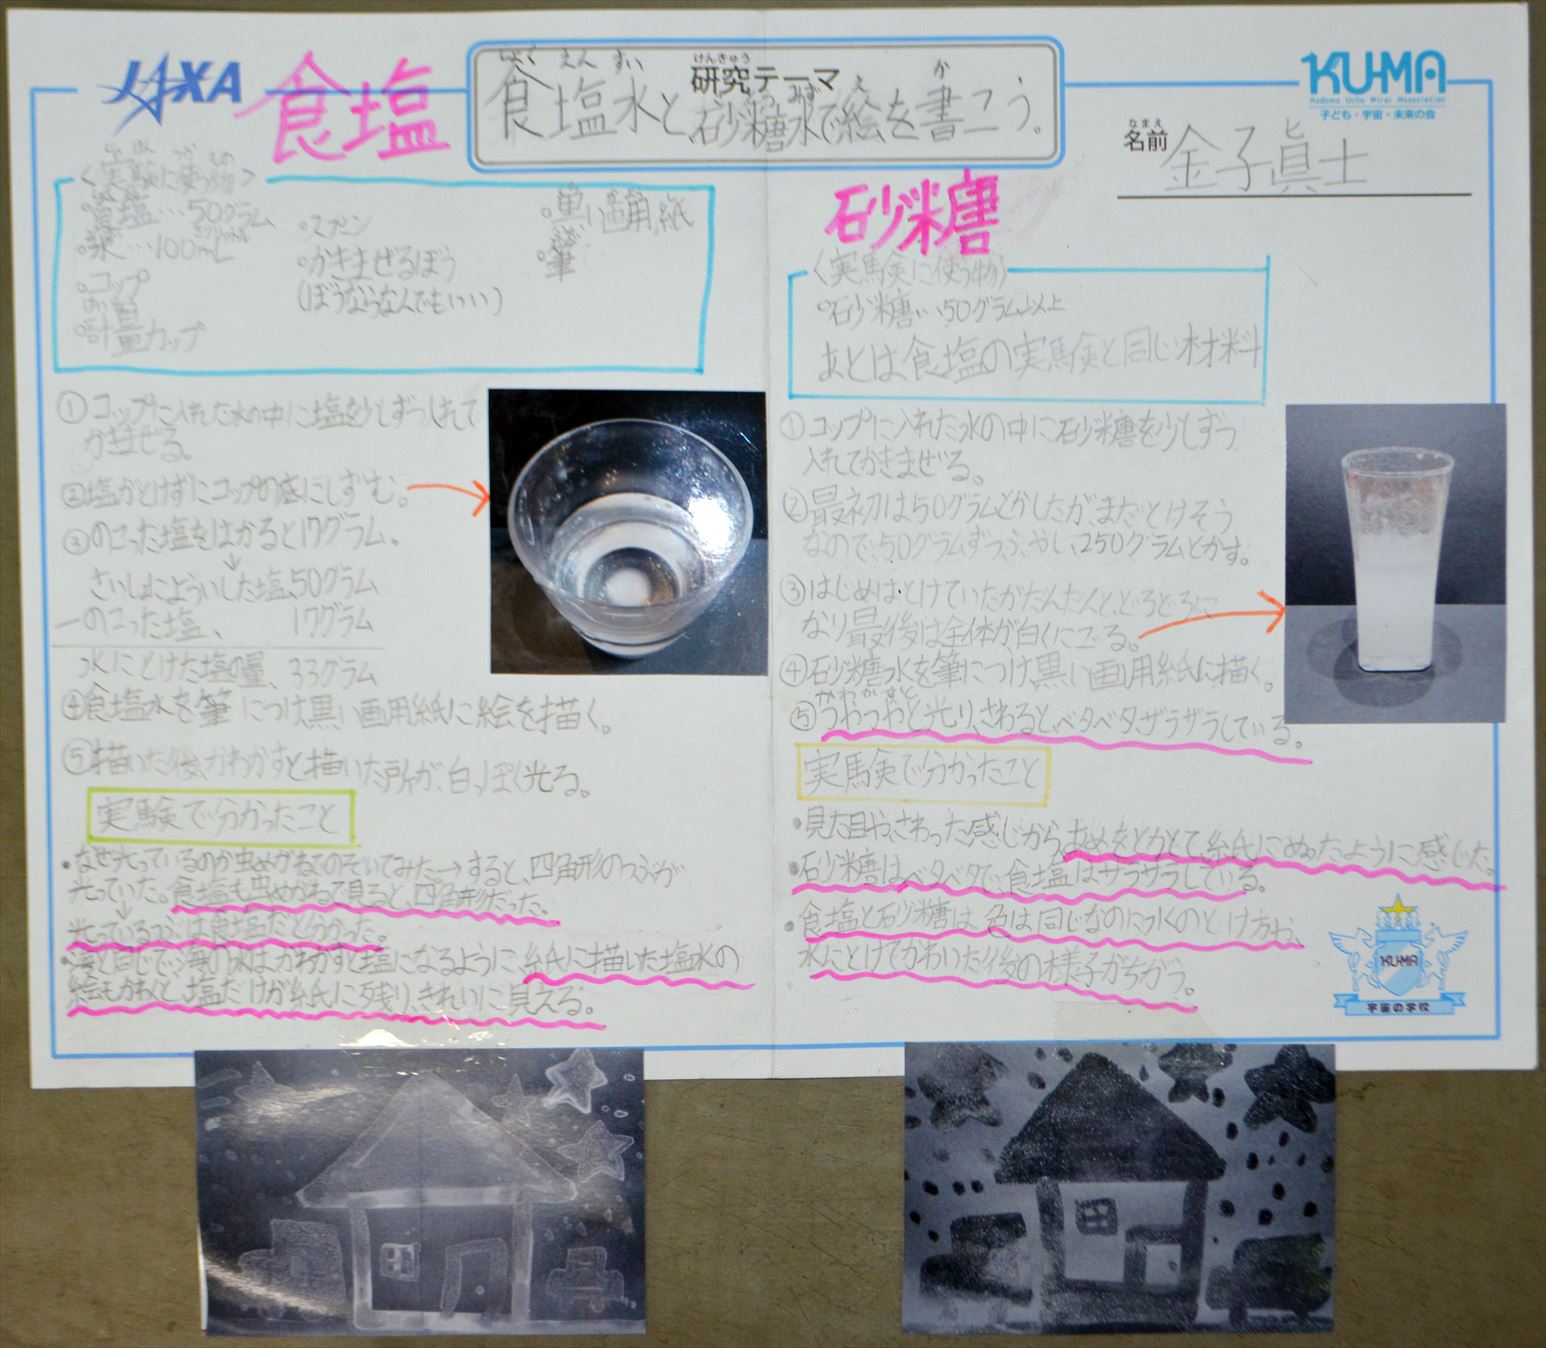 JAXA
食塩
けんきゅう
研究テーマ
しょく えん すい みず え か
食塩水と砂糖水で絵を書こう。
KU-MA
Kodomo Uchu Mirai Association
子ども・宇宙・未来の会
なまえ
名前 金子眞士
〈実験に使う物〉
・食塩…50グラム
・水…100mL
・コップ
・計量カップ
・スプーン
・かきまぜるぼう
(ぼうならなんでもいい)
・黒い画用紙
・筆
①コップに入れた水の中に塩を少しずつ入れて
かきまぜる。
②塩がとけずにコップの底にしずむ。
③のこった塩をはかると17グラム。
↓
さいしょにようい した塩、50グラム
－のこった塩、 17グラム
水にとけた塩の量、33グラム
④食塩水を筆につけ、黒い画用紙に絵を描く。
⑤描いた後、かわかすと描いた所が、白っぽく光る。
実験で分かったこと
・なぜ光っているのか虫めがねでのぞいてみた→すると、四角形のつぶが
光っていた。食塩も虫めがねで見ると、四角形だった。
↓
光っているつぶは食塩だと分かった。
・海と同じで、海の水はかわかすと塩になるように、紙に描いた塩水の
絵もかわくと、塩だけが紙に残り、きれいに見える。
砂糖
〈実験に使う物〉
・砂糖…50グラム以上
あとは食塩の実験と同じ材料
①コップに入れた水の中に砂糖を少しずつ
入れてかきまぜる。
②最初は50グラムとかしたが、まだとけそう
なので、50グラムずつふやし、250グラムとかす。
③はじめはとけていたがだんだんと、どろどろに
なり最後は全体が白くにごる。
④砂糖水を筆につけ、黒い画用紙に描く。
かわかすと
⑤つやつやと光り、さわるとベタベタ、ザラザラしている。
実験で分かったこと
・見た目や、さわった感じから、あめをとかして、紙にぬったように感じた。
・砂糖はベタベタで、食塩はサラサラしている。
・食塩と砂糖は、色は同じなのに水へのとけ方や、
水にとけてかわいた後の様子がちがう。
KU-MA
宇宙の学校